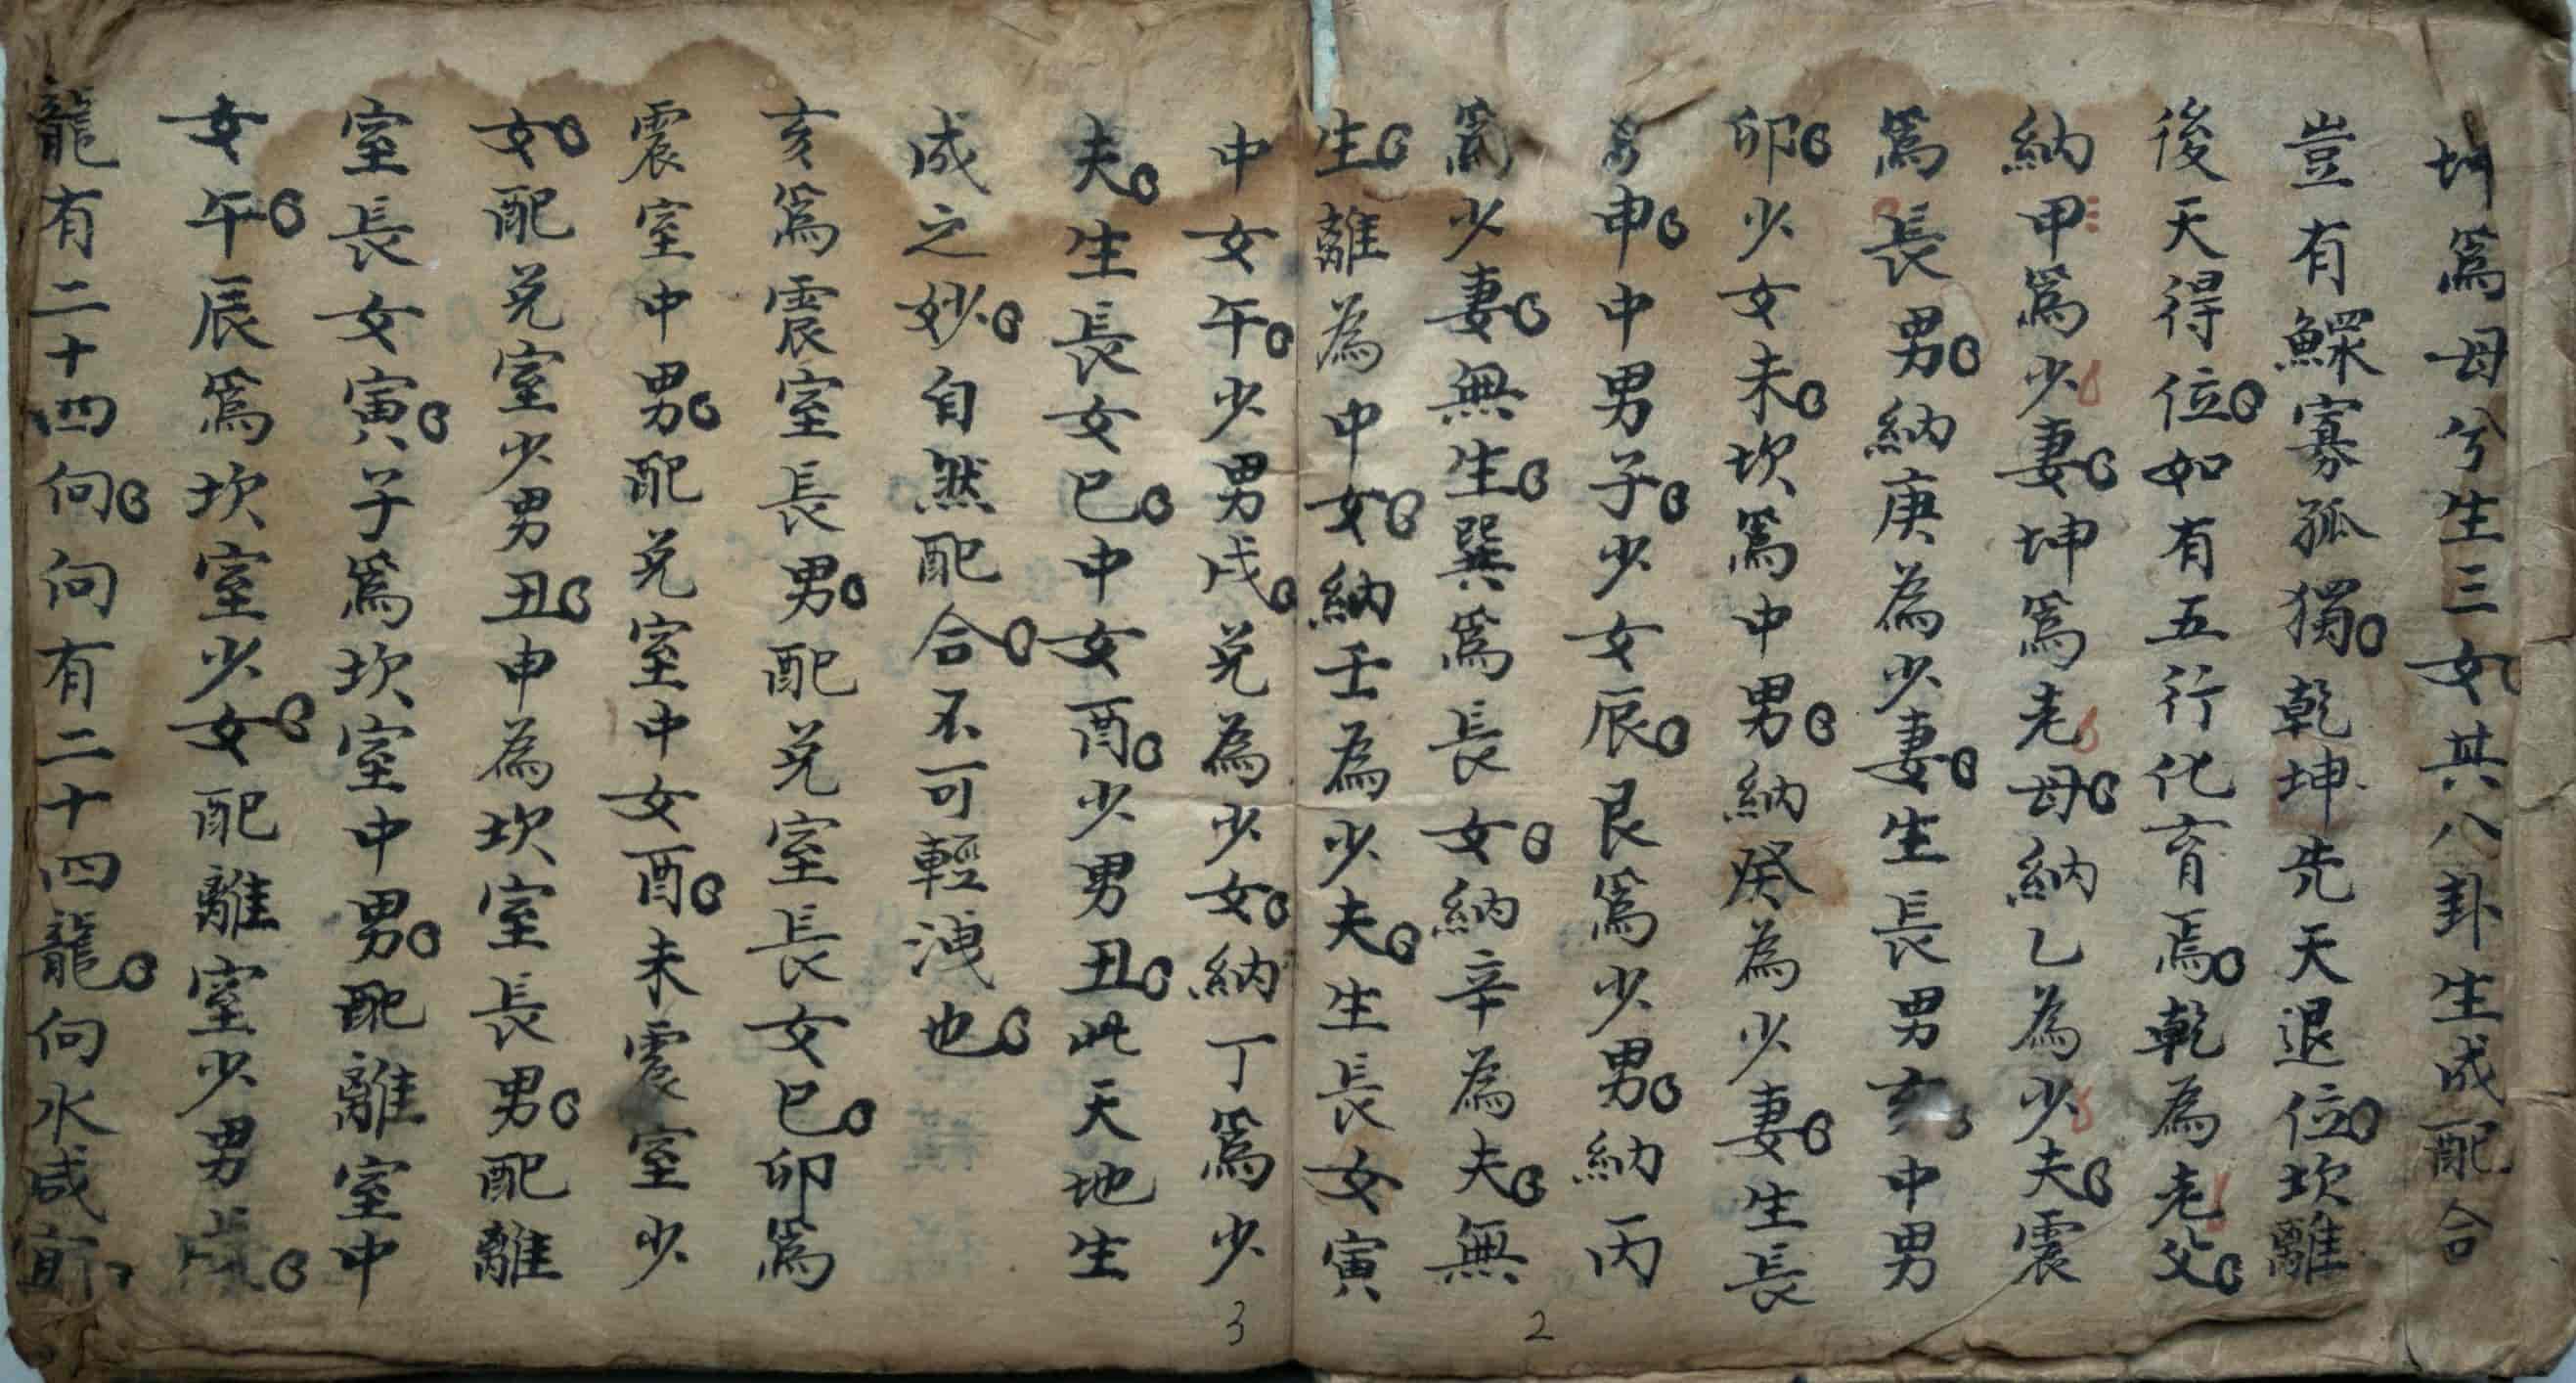 坤爲母兮生三女其八卦生成配合
豈有鰥寡孤獨乾坤先天退位坎離
後天得位如有五行化育焉乾為老父
納甲爲少妻坤爲老母納乙為少夫震
爲長男納庚為少妻生長男亥中男
卯少女未坎爲中男納癸為少妻生長
男申中男子少女辰艮爲少男納丙
爲少妻無生巽爲長女納辛為夫無
生離為中女納壬為少夫生長女寅
中女午少男戌兑為少女納丁爲少
夫生長女巳中女酉少男丑此天地生
成之妙自然配合不可輕洩也
亥爲震室長男配兑室長女巳卯爲
震室中男配兑室中女酉未震室少
女配兑室少男丑申為坎室長男配離
室長女寅子爲坎室中男配離室中
女午辰爲坎室少女配離室少男戌
龍有二十四向向有二十四龍向水咸宜
3
2